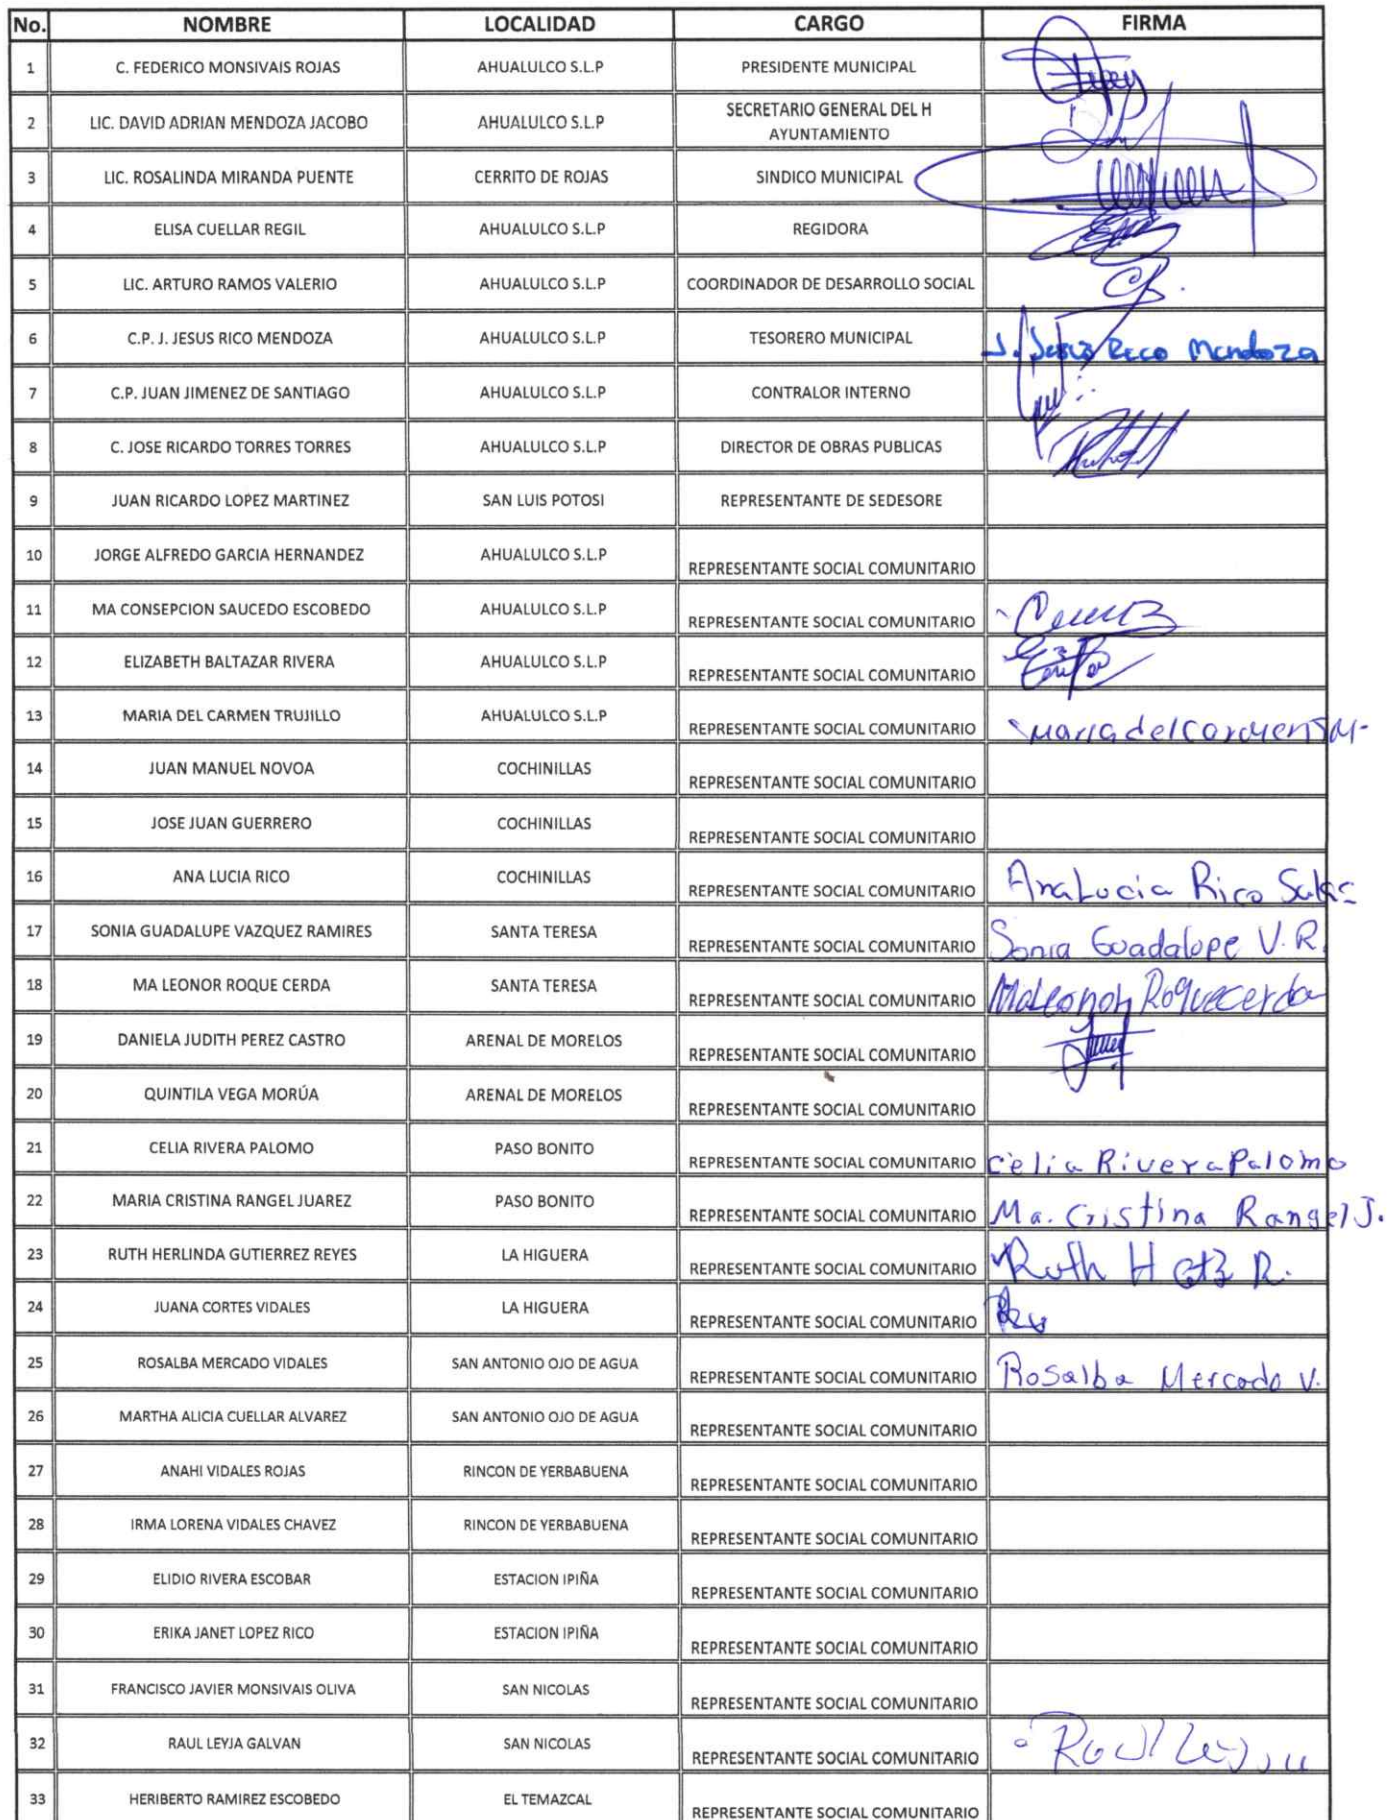 No. NOMBRE LOCALIDAD CARGO FIRMA
1 C. FEDERICO MONSIVAIS ROJAS AHUALULCO S.L.P PRESIDENTE MUNICIPAL
2 LIC. DAVID ADRIAN MENDOZA JACOBO AHUALULCO S.L.P SECRETARIO GENERAL DEL H
AYUNTAMIENTO
3 LIC. ROSALINDA MIRANDA PUENTE CERRITO DE ROJAS SINDICO MUNICIPAL
4 ELISA CUELLAR REGIL AHUALULCO S.L.P REGIDORA
5 LIC. ARTURO RAMOS VALERIO AHUALULCO S.L.P COORDINADOR DE DESARROLLO SOCIAL
6 C.P. J. JESUS RICO MENDOZA AHUALULCO S.L.P TESORERO MUNICIPAL J. Jesus Rico Mendoza
7 C.P. JUAN JIMENEZ DE SANTIAGO AHUALULCO S.L.P CONTRALOR INTERNO
8 C. JOSE RICARDO TORRES TORRES AHUALULCO S.L.P DIRECTOR DE OBRAS PUBLICAS
9 JUAN RICARDO LOPEZ MARTINEZ SAN LUIS POTOSI REPRESENTANTE DE SEDESORE
10 JORGE ALFREDO GARCIA HERNANDEZ AHUALULCO S.L.P REPRESENTANTE SOCIAL COMUNITARIO
11 MA CONSEPCION SAUCEDO ESCOBEDO AHUALULCO S.L.P REPRESENTANTE SOCIAL COMUNITARIO
12 ELIZABETH BALTAZAR RIVERA AHUALULCO S.L.P REPRESENTANTE SOCIAL COMUNITARIO
13 MARIA DEL CARMEN TRUJILLO AHUALULCO S.L.P REPRESENTANTE SOCIAL COMUNITARIO Maria del Carmen
14 JUAN MANUEL NOVOA COCHINILLAS REPRESENTANTE SOCIAL COMUNITARIO
15 JOSE JUAN GUERRERO COCHINILLAS REPRESENTANTE SOCIAL COMUNITARIO
16 ANA LUCIA RICO COCHINILLAS REPRESENTANTE SOCIAL COMUNITARIO Ana Lucia Rico Salas
17 SONIA GUADALUPE VAZQUEZ RAMIRES SANTA TERESA REPRESENTANTE SOCIAL COMUNITARIO Sonia Guadalupe V. R.
18 MA LEONOR ROQUE CERDA SANTA TERESA REPRESENTANTE SOCIAL COMUNITARIO Ma Leonor Roque cerda
19 DANIELA JUDITH PEREZ CASTRO ARENAL DE MORELOS REPRESENTANTE SOCIAL COMUNITARIO
20 QUINTILA VEGA MORÚA ARENAL DE MORELOS REPRESENTANTE SOCIAL COMUNITARIO
21 CELIA RIVERA PALOMO PASO BONITO REPRESENTANTE SOCIAL COMUNITARIO Celia Rivera Palomo
22 MARIA CRISTINA RANGEL JUAREZ PASO BONITO REPRESENTANTE SOCIAL COMUNITARIO Ma. Cristina Rangel J.
23 RUTH HERLINDA GUTIERREZ REYES LA HIGUERA REPRESENTANTE SOCIAL COMUNITARIO Ruth H Gtz R.
24 JUANA CORTES VIDALES LA HIGUERA REPRESENTANTE SOCIAL COMUNITARIO
25 ROSALBA MERCADO VIDALES SAN ANTONIO OJO DE AGUA REPRESENTANTE SOCIAL COMUNITARIO Rosalba Mercado V.
26 MARTHA ALICIA CUELLAR ALVAREZ SAN ANTONIO OJO DE AGUA REPRESENTANTE SOCIAL COMUNITARIO
27 ANAHI VIDALES ROJAS RINCON DE YERBABUENA REPRESENTANTE SOCIAL COMUNITARIO
28 IRMA LORENA VIDALES CHAVEZ RINCON DE YERBABUENA REPRESENTANTE SOCIAL COMUNITARIO
29 ELIDIO RIVERA ESCOBAR ESTACION IPIÑA REPRESENTANTE SOCIAL COMUNITARIO
30 ERIKA JANET LOPEZ RICO ESTACION IPIÑA REPRESENTANTE SOCIAL COMUNITARIO
31 FRANCISCO JAVIER MONSIVAIS OLIVA SAN NICOLAS REPRESENTANTE SOCIAL COMUNITARIO
32 RAUL LEYJA GALVAN SAN NICOLAS REPRESENTANTE SOCIAL COMUNITARIO
33 HERIBERTO RAMIREZ ESCOBEDO EL TEMAZCAL REPRESENTANTE SOCIAL COMUNITARIO